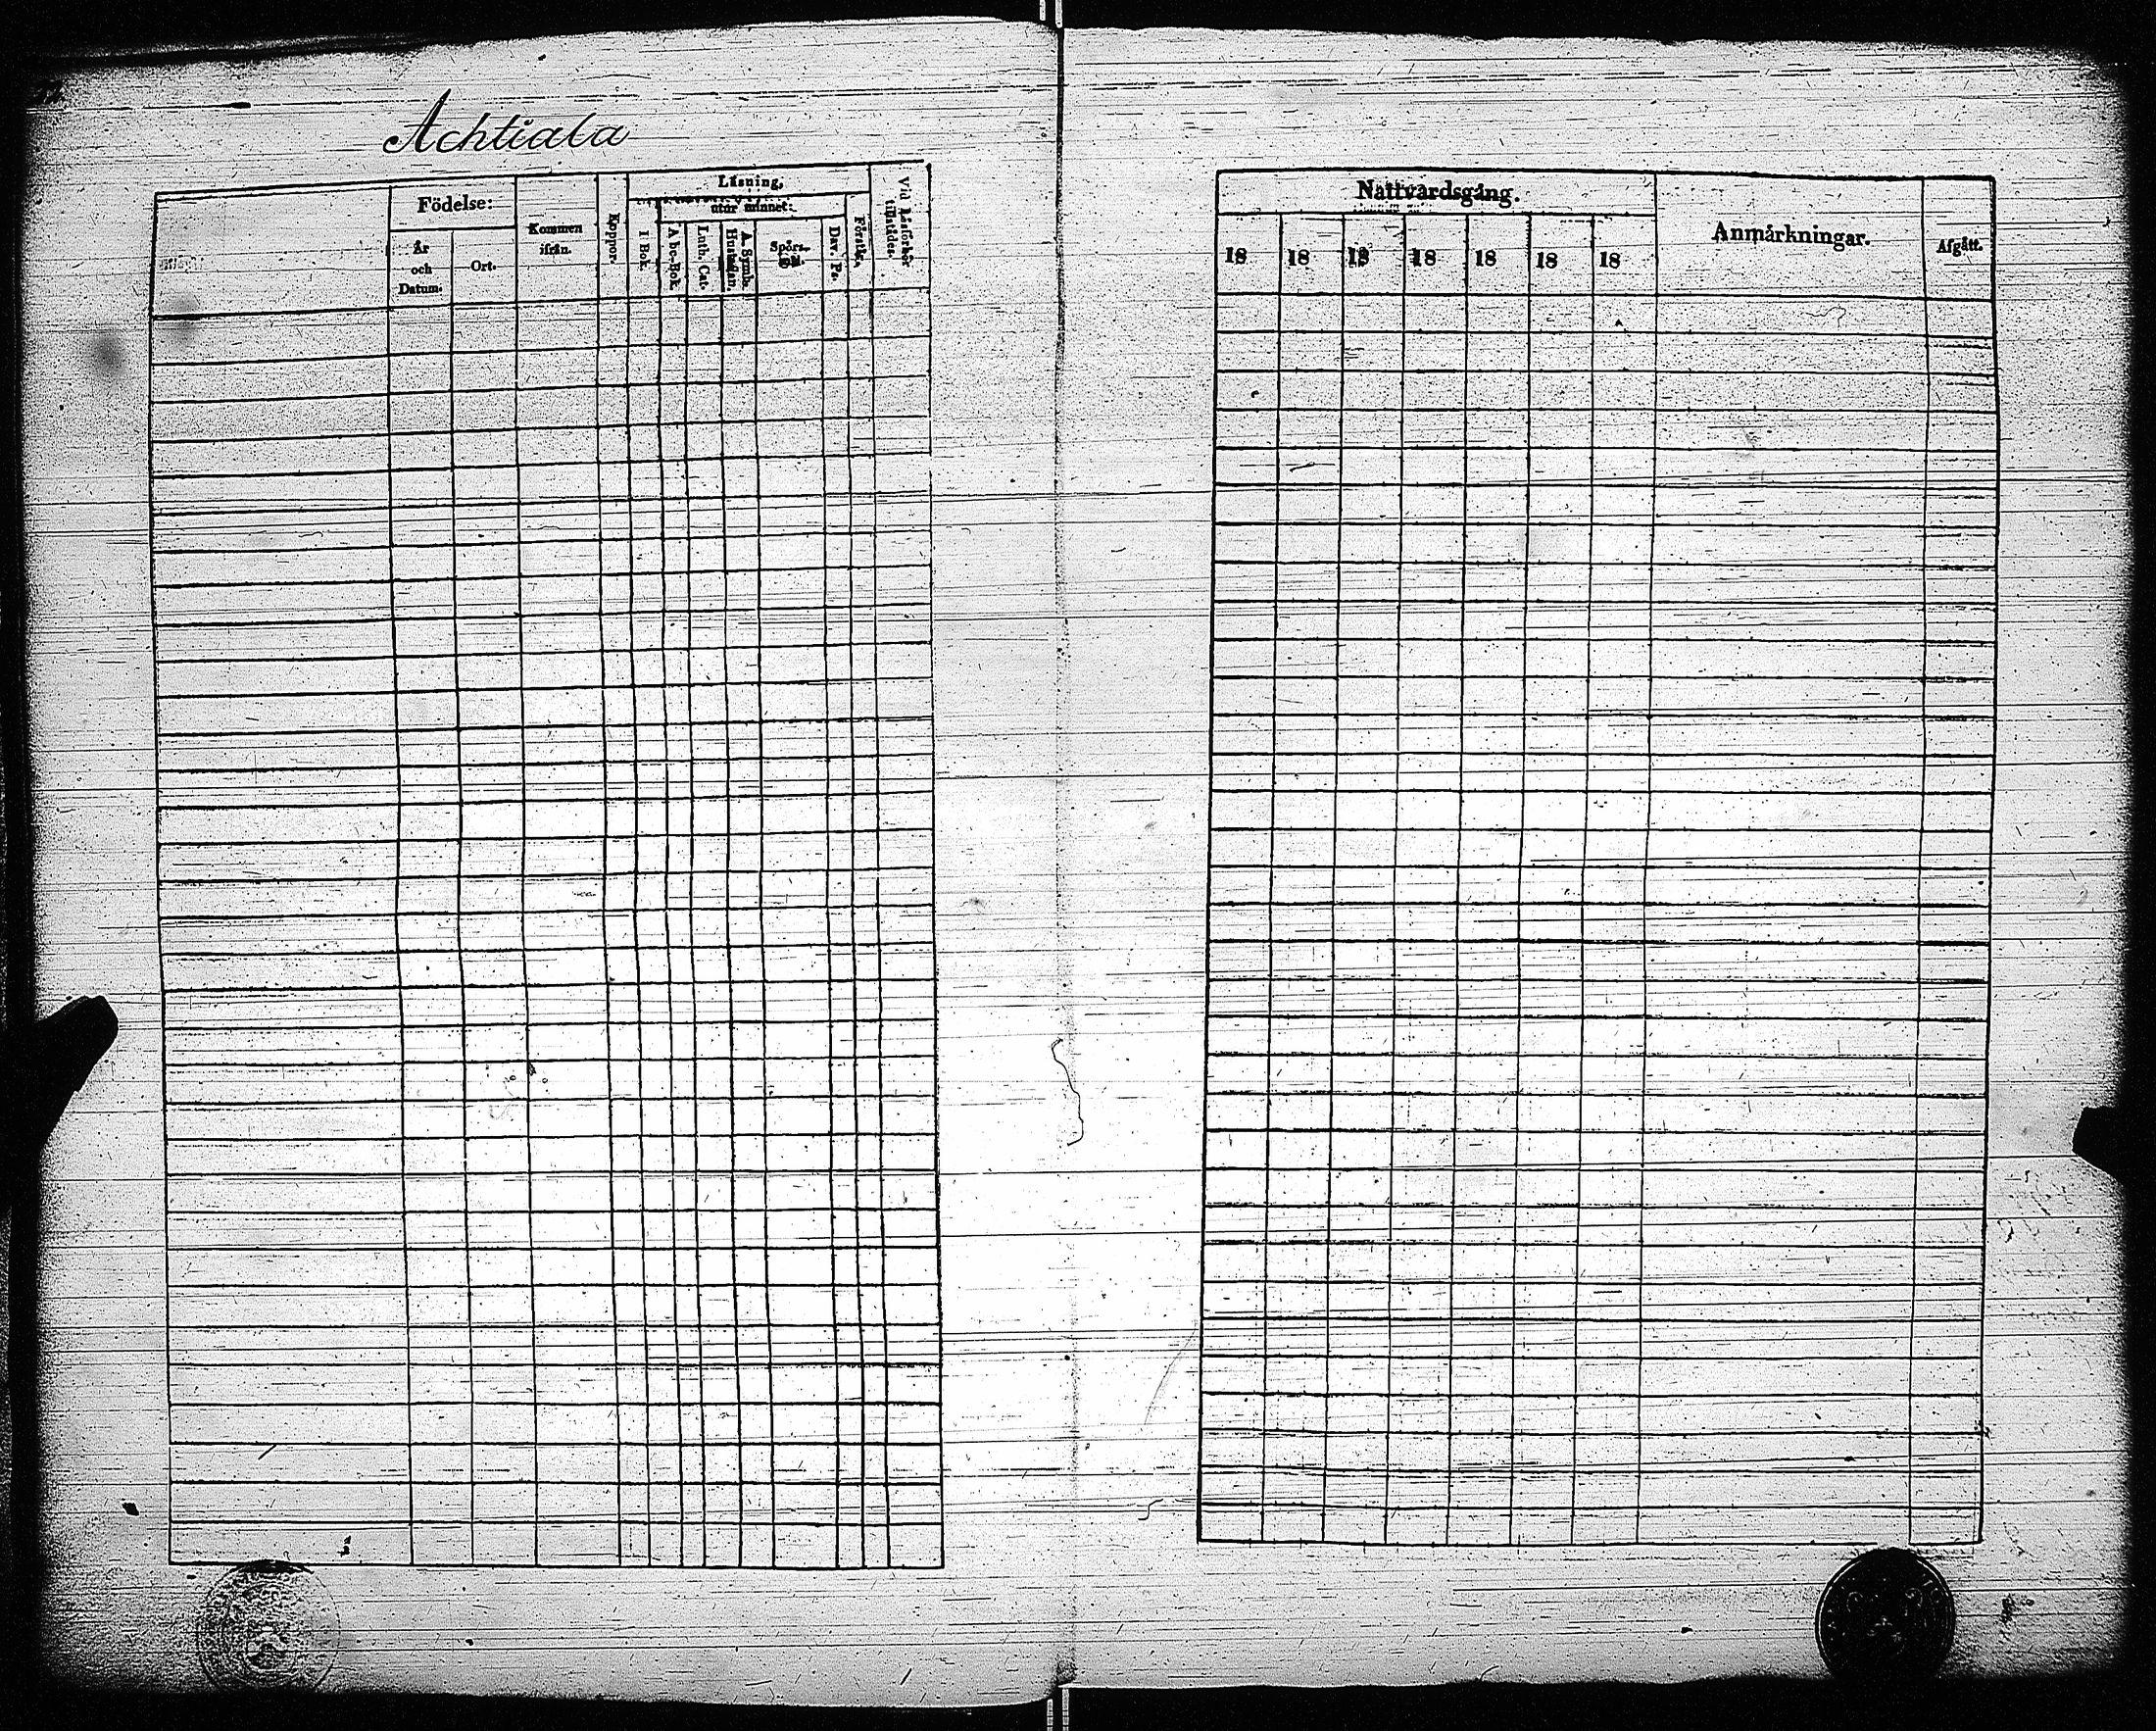 Achtiala
Födelse:
År
och
Datum.
Ort.
Kommen
ifrån.
Koppor.
Läsning,
utur minnet:
I Bok.
A bc-Bok
Luth. Cat.
A. Symb.
Hustaflan.
Spörs-
mål.
Dav. Ps.
Förstår.
Vid Läsförhör
tillstädes.
Nattvardsgång.
18 18 18 18 18 18 18
Anmärkningar.
Afgått.